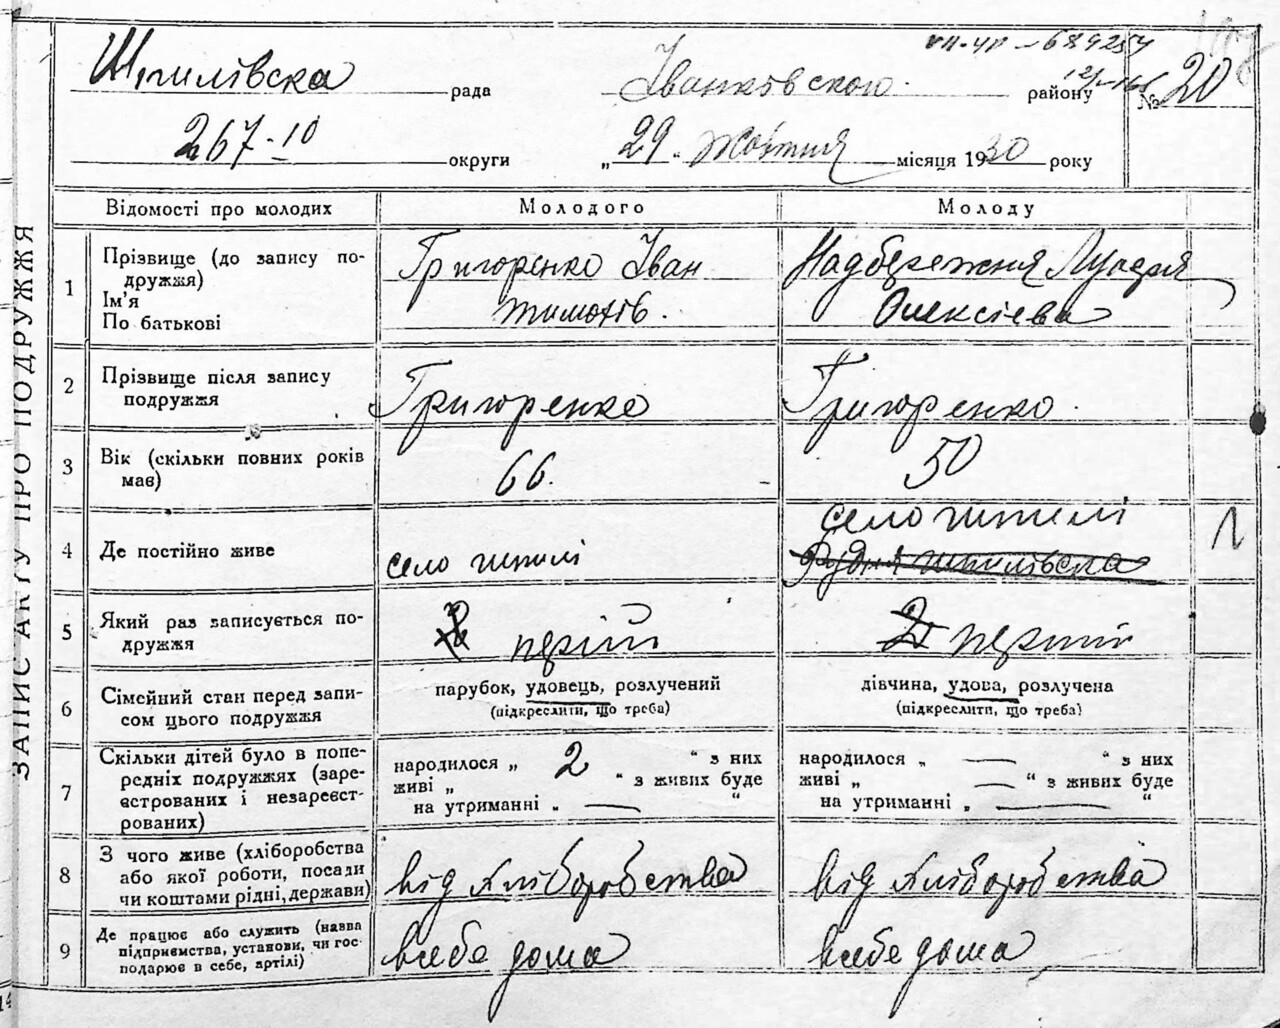 ЗАПИС АКТУ ПРО ПОДРУЖЖЯ
Шпилівска рада Іванковского району № 20
267-10 округи „ 29 " жовтня місяця 1930 року
Відомості про молодих Молодого Молоду
1 Прізвище (до запису подружжя) Ім'я По батькові
Григоренко Іван
Тимохів.
Надбережня Лукерія
Олексієва
2 Прізвище після запису
подружжя
Григоренко Григоренко
3 Вік (скільки повних років
має)
66. 50
4 Де постійно живе
село шпилі
село шпилі
Рудня шпилівска
5 Який раз записується по-
дружжя
2 перш­ий 2 перший
6 Сімейний стан перед запи-
сом цього подружжя
парубок, удовець, розлучений
(підкреслити, що треба)
дівчина, удова, розлучена
(підкреслити, що треба)
7 Скільки дітей було в попе-
редніх подружжях (заре-
єстрованих і незареєст-
рованих)
народилося „ 2 " з них
живі „ " з живих буде
на утриманні „ — "
народилося „ — " з них
живі „ — " з живих буде
на утриманні „ — "
8 З чого живе (хліборобства
або якої роботи, посади
чи коштами рідні, держави)
від хліборобства від хліборобства
9 Де працює або служить (назва
підприємства, установи, чи гос-
подарює в себе, артілі)
всебе дома всебе дома